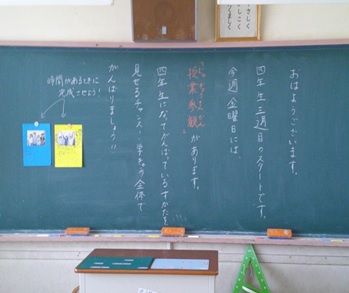 おはようございます。
四年生三週目のスタートです。
今週金曜日には
"授業参観"があります。
四年生になってがんばっているすがたを
見せるチャンス…学きゅう全体で
がんばりましょう!!
時間があるときに
完成させよう!